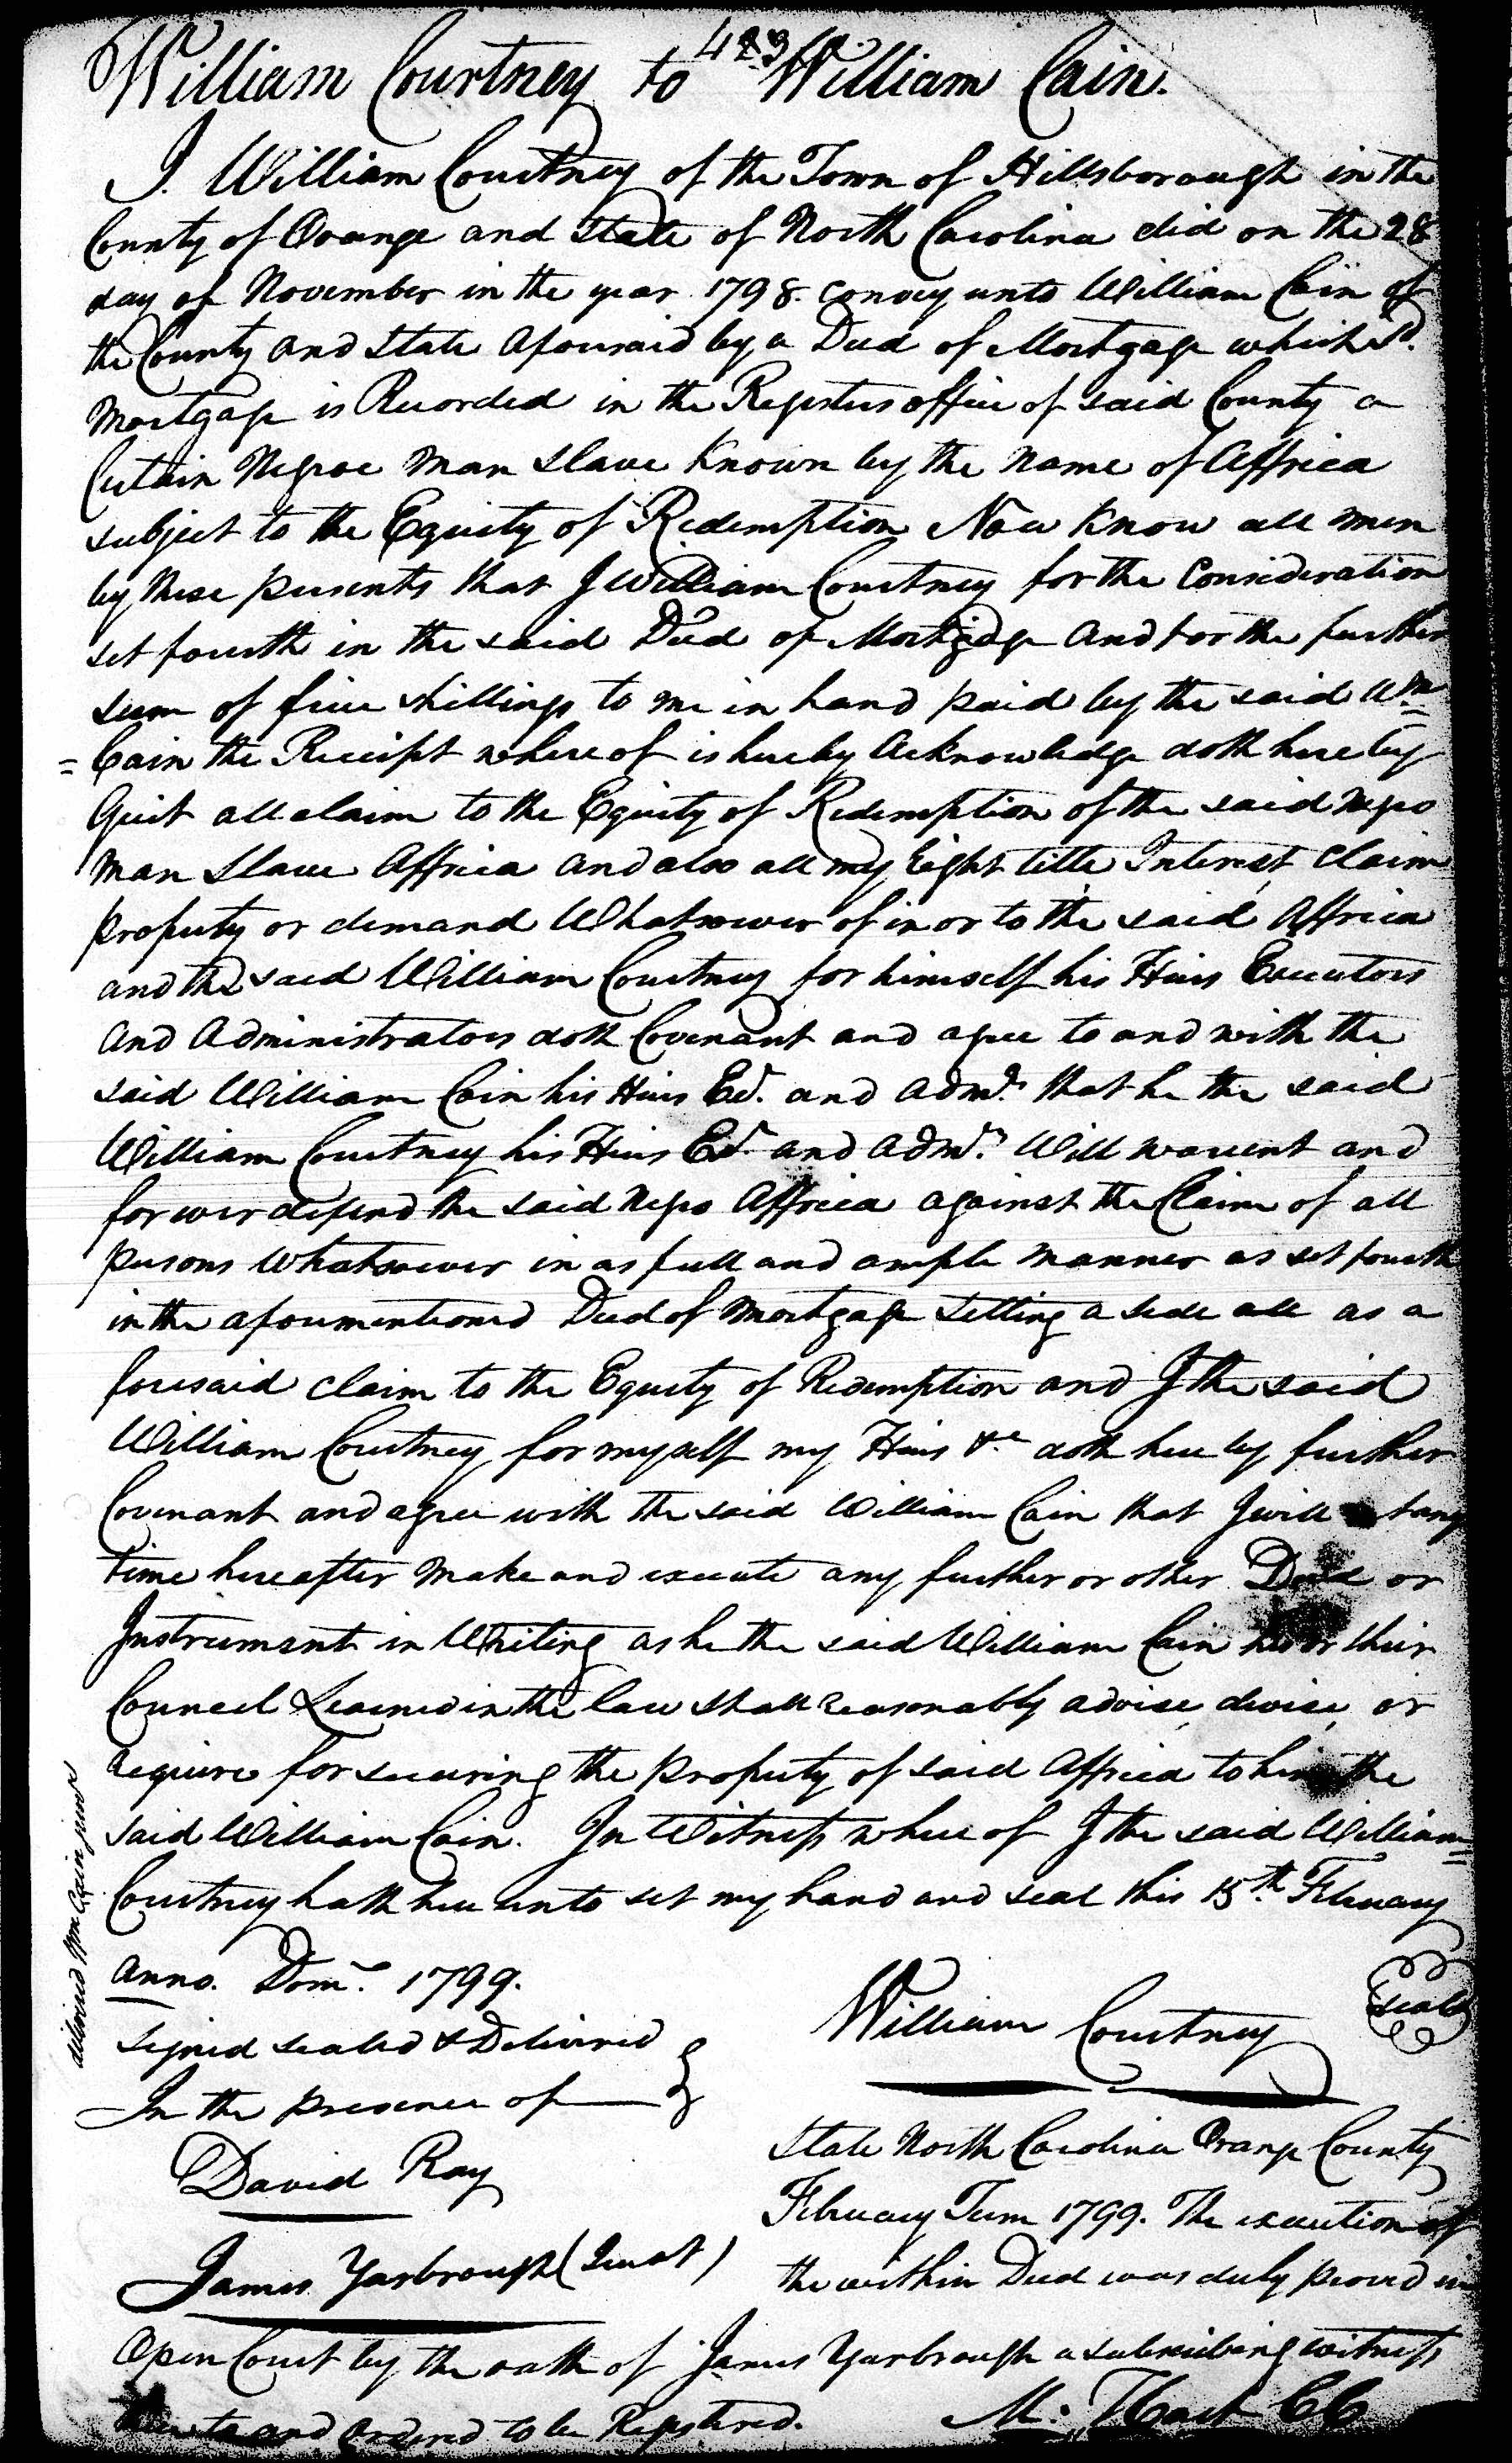 423
William Courtney to William Cain.
I. William Courtney of the Town of Hillsborough in the
County of Orange and State of North Carolina did on the 28
day of November in the year 1798. convey unto William Cain of
the County and State aforesaid by a Deed of Mortgage which sd.
Mortgage is Recorded in the Registers office of said County a
Certain Negroe man Slave Known by the name of Affrica
subject to the Equity of Redemption Now Know all men
by these presents that I William Courtney for the Consideration
set fourth in the said Deed of Mortgage and for the further
sum of five shillings to me in hand paid by the said Wm.
= Cain the Receipt where of is hereby Acknowledge doth here by
Quit all claim to the Equity of Redemption of the said Negro
man Slave Affrica and also all my Right title Interest claim
property or demand Whatsoever of in or to the said Affrica
and the said William Courtney for himself his Heirs Executors
and Administrators doth Covenant and agree to and with the
said William Cain his Heirs Exr. and Admrs. that he the said
William Courtney his Heirs Exr. and Admrs. Will warrent and
for ever defend the said Negro Affrica against the Claim of all
persons Whatsoever in as full and ample manner as set fourth
in the aforementioned Deed of Mortgage setting a side all as a
foresaid claim to the Equity of Redemption and I the said
William Courtney for myself my Heirs &c doth here by further
Covenant and agree with the said William Cain that I will at any
time hereafter make and execute any further or other Deed or
Instrument in Writing as he the said William Cain his or their
Council Learned in the law shall reasonably advise, devise, or
require for securing the property of said Affrica to him the
said William Cain. In Witness where of I the said William =
Courtney hath here unto set my hand and seal this 15th. February
Anno. Dom. 1799.
Signed sealed & Delivered
In the presence of
William Courtney
Seal
David Ray
James Yarbrough (Jurat)
delivered Wm Cain junr
State North Carolina Orange County
February Term 1799. The execution of
the within Deed was duly proved in
Open Court by the oath of James Yarbrough a subscribing witness
thereto and Ordered to be Registered.
M. Hart CC